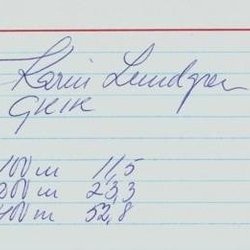 Karin Lundgren
GKIK
100 m 11,5
200 m 23,3
400 m 52,8